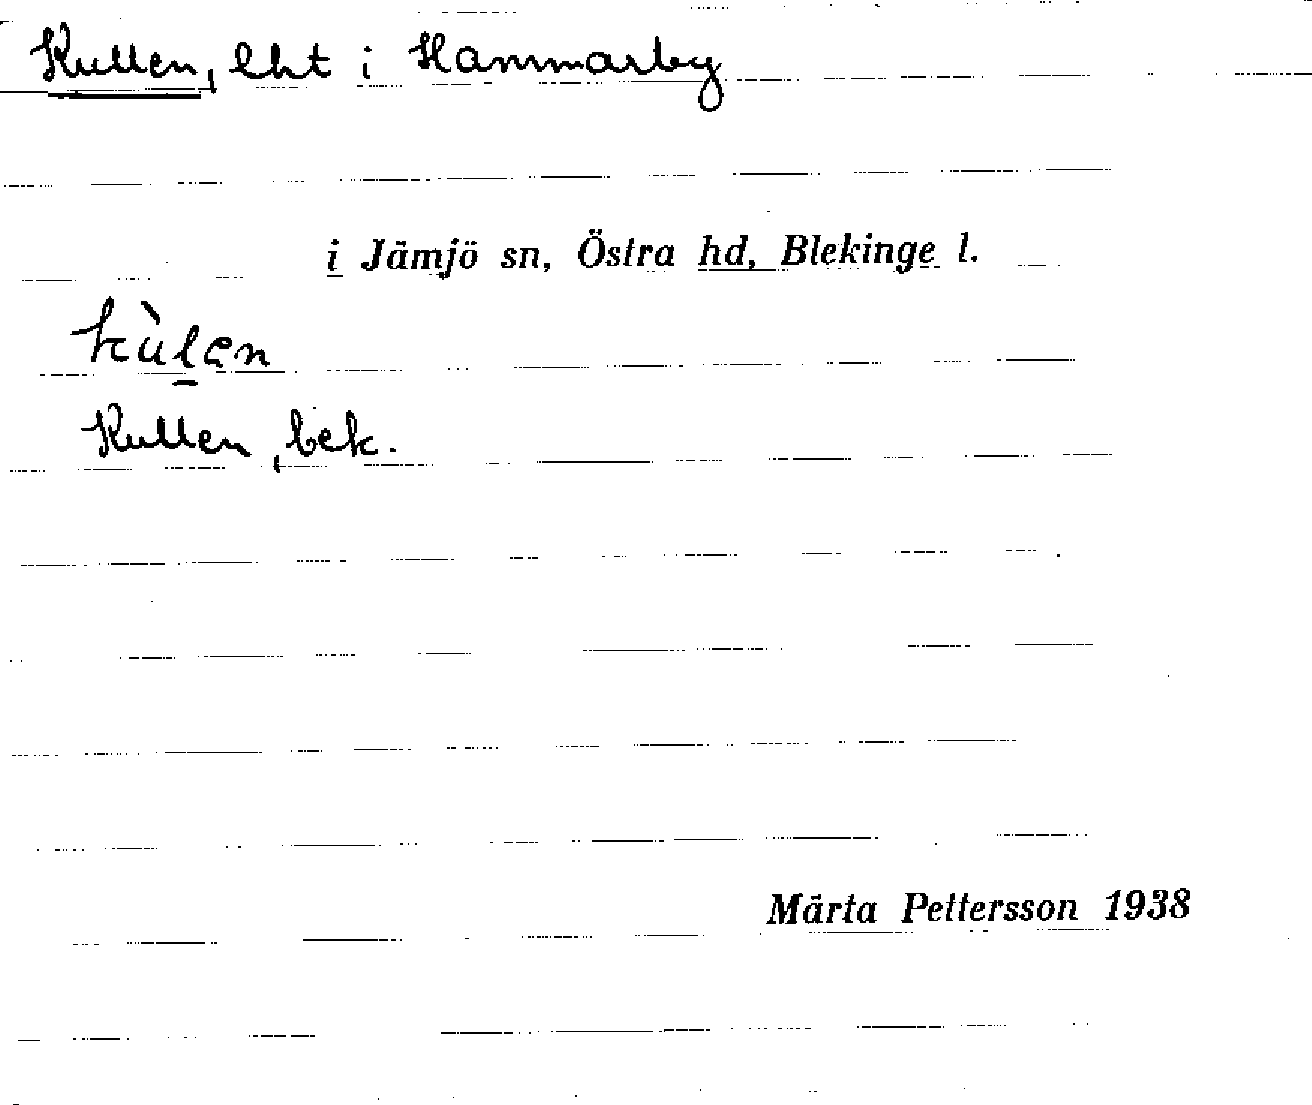 Kullen, lht i Hammarby
i Jämjö sn, Östra hd, Blekinge l.
kùl̲en
Kullen, bek.
Märta Pettersson 1938